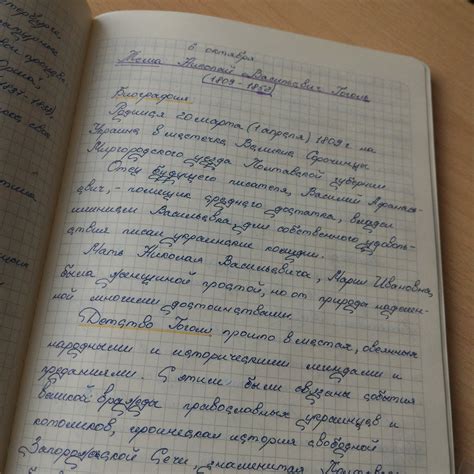 6 октября
Тема Николай Васильевич Гоголь
(1809 - 1852)
Биография
Родился 20 марта (1 апреля) 1809 г на
Украине в местечке Великие Сорочинцы
Миргородского уезда Полтавской губернии
Отец будущего писателя, Василий Афанась-
евич, - помещик среднего достатка, владел
имением Васильевка, для собственного удоволь-
ствия писал украинские комедии.
Мать Николая Васильевича, Мария Ивановна,
была женщиной простой, но от природы наделен-
ной многими достоинствами.
Детство Гоголя прошло в местах, овеянных
народными и историческими легендами и
преданиями. С этим были связаны события
великой вражды православных украинцев и
католиков, героическая история свободной
Запорожской Сечи, знаменитая